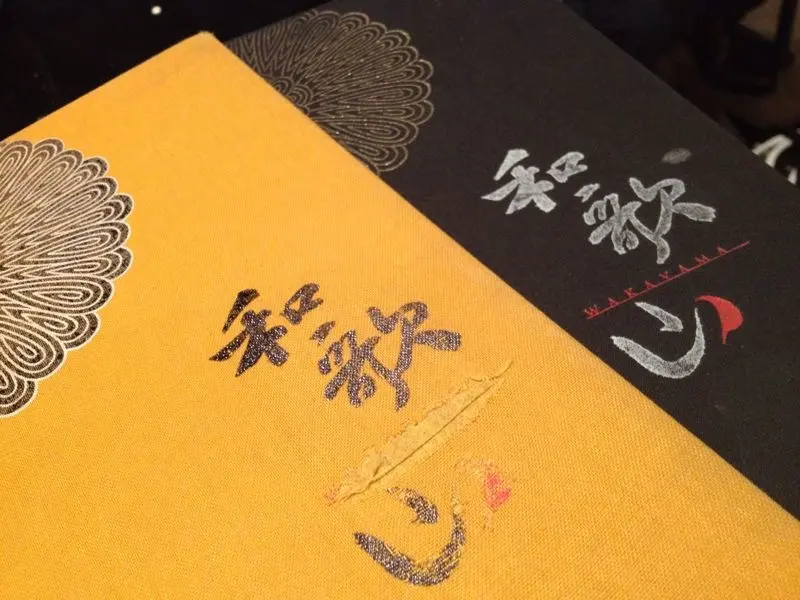 和歌山
和歌
WAKAYAMA
山